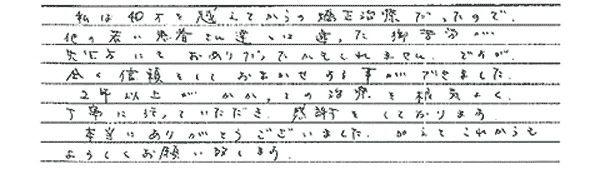 私は40才を越えてからの矯正治療だったので、
他の若い患者さん達とは違った御苦労が
先生方にもおありだったかもしれません。ですが、
全く信頼をしておまかせする事ができました。
2年以上がかかったこの治療を根気よく、
丁寧に行っていただき、感謝をしております。
本当にありがとうございました。加えてこれからも
よろしくお願い致します。